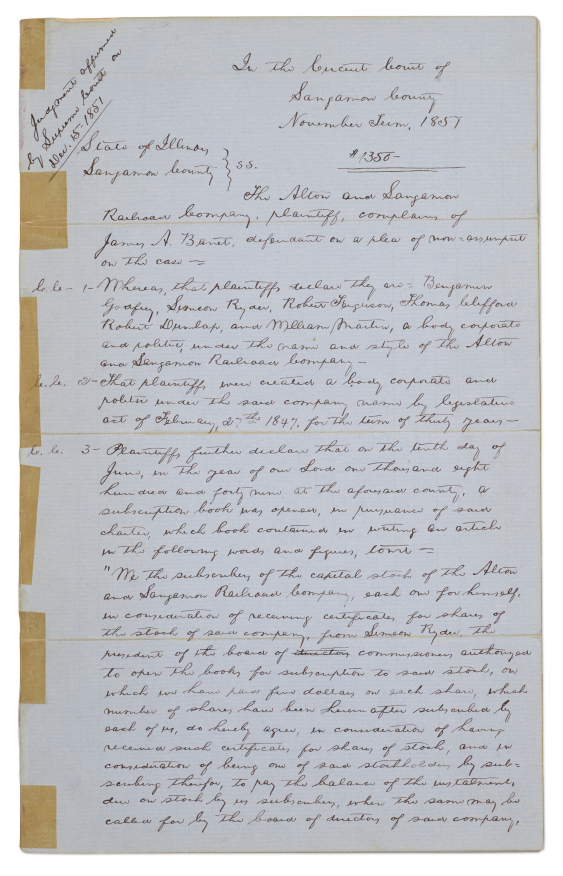 Judgment affirmed
by Supreme Court on
Dec. 15-1851
In the Circuit Court of
Sangamon County
November Term, 1851
State of Illinois
Sangamon County } s.s.
$1350-
The Alton and Sangamon
Railroad Company, plaintiff, complains of
James A. Barret, defendant on a plea of non-assumpsit
on the case =
1- Whereas, that plaintiffs declare they are = Benjamin
Godfrey, Simeon Ryder, Robert Ferguson, Thomas Clifford
Robert Dunlap, and William Martin, a body corporate
and politic, under the name and style of the Alton
and Sangamon Railroad Company-
2- That plaintiffs were created a body corporate and
politic under the said company name by legislative
act of February, 27th 1847, for the term of thirty years-
3- Plaintiffs further declare that on the tenth day of
June, in the year of our Lord one thousand eight
hundred and forty nine, at the aforesaid county, a
subscription book was opened, in pursuance of said
charter, which book contained in writing an article
in the following words and figures, towit =
"We the subscribers of the capital stock of the Alton
and Sangamon Railroad Company, each one for himself,
in consideration of receiving certificates for shares of
the stock of said company, from Simeon Ryder, the
president of the board of directors commissioners authorized
to open the books for subscription to said stock, on
which we have paid five dollars on each share, which
number of shares have been hereinafter subscribed by
each of us, do hereby agree, in consideration of having
received such certificates for shares of stock, and in
consideration of being one of said stockholders by sub=
scribing therefor, to pay the balance of the instalments
due on stock by us subscribers, when the same may be
called for by the board of directors of said company,